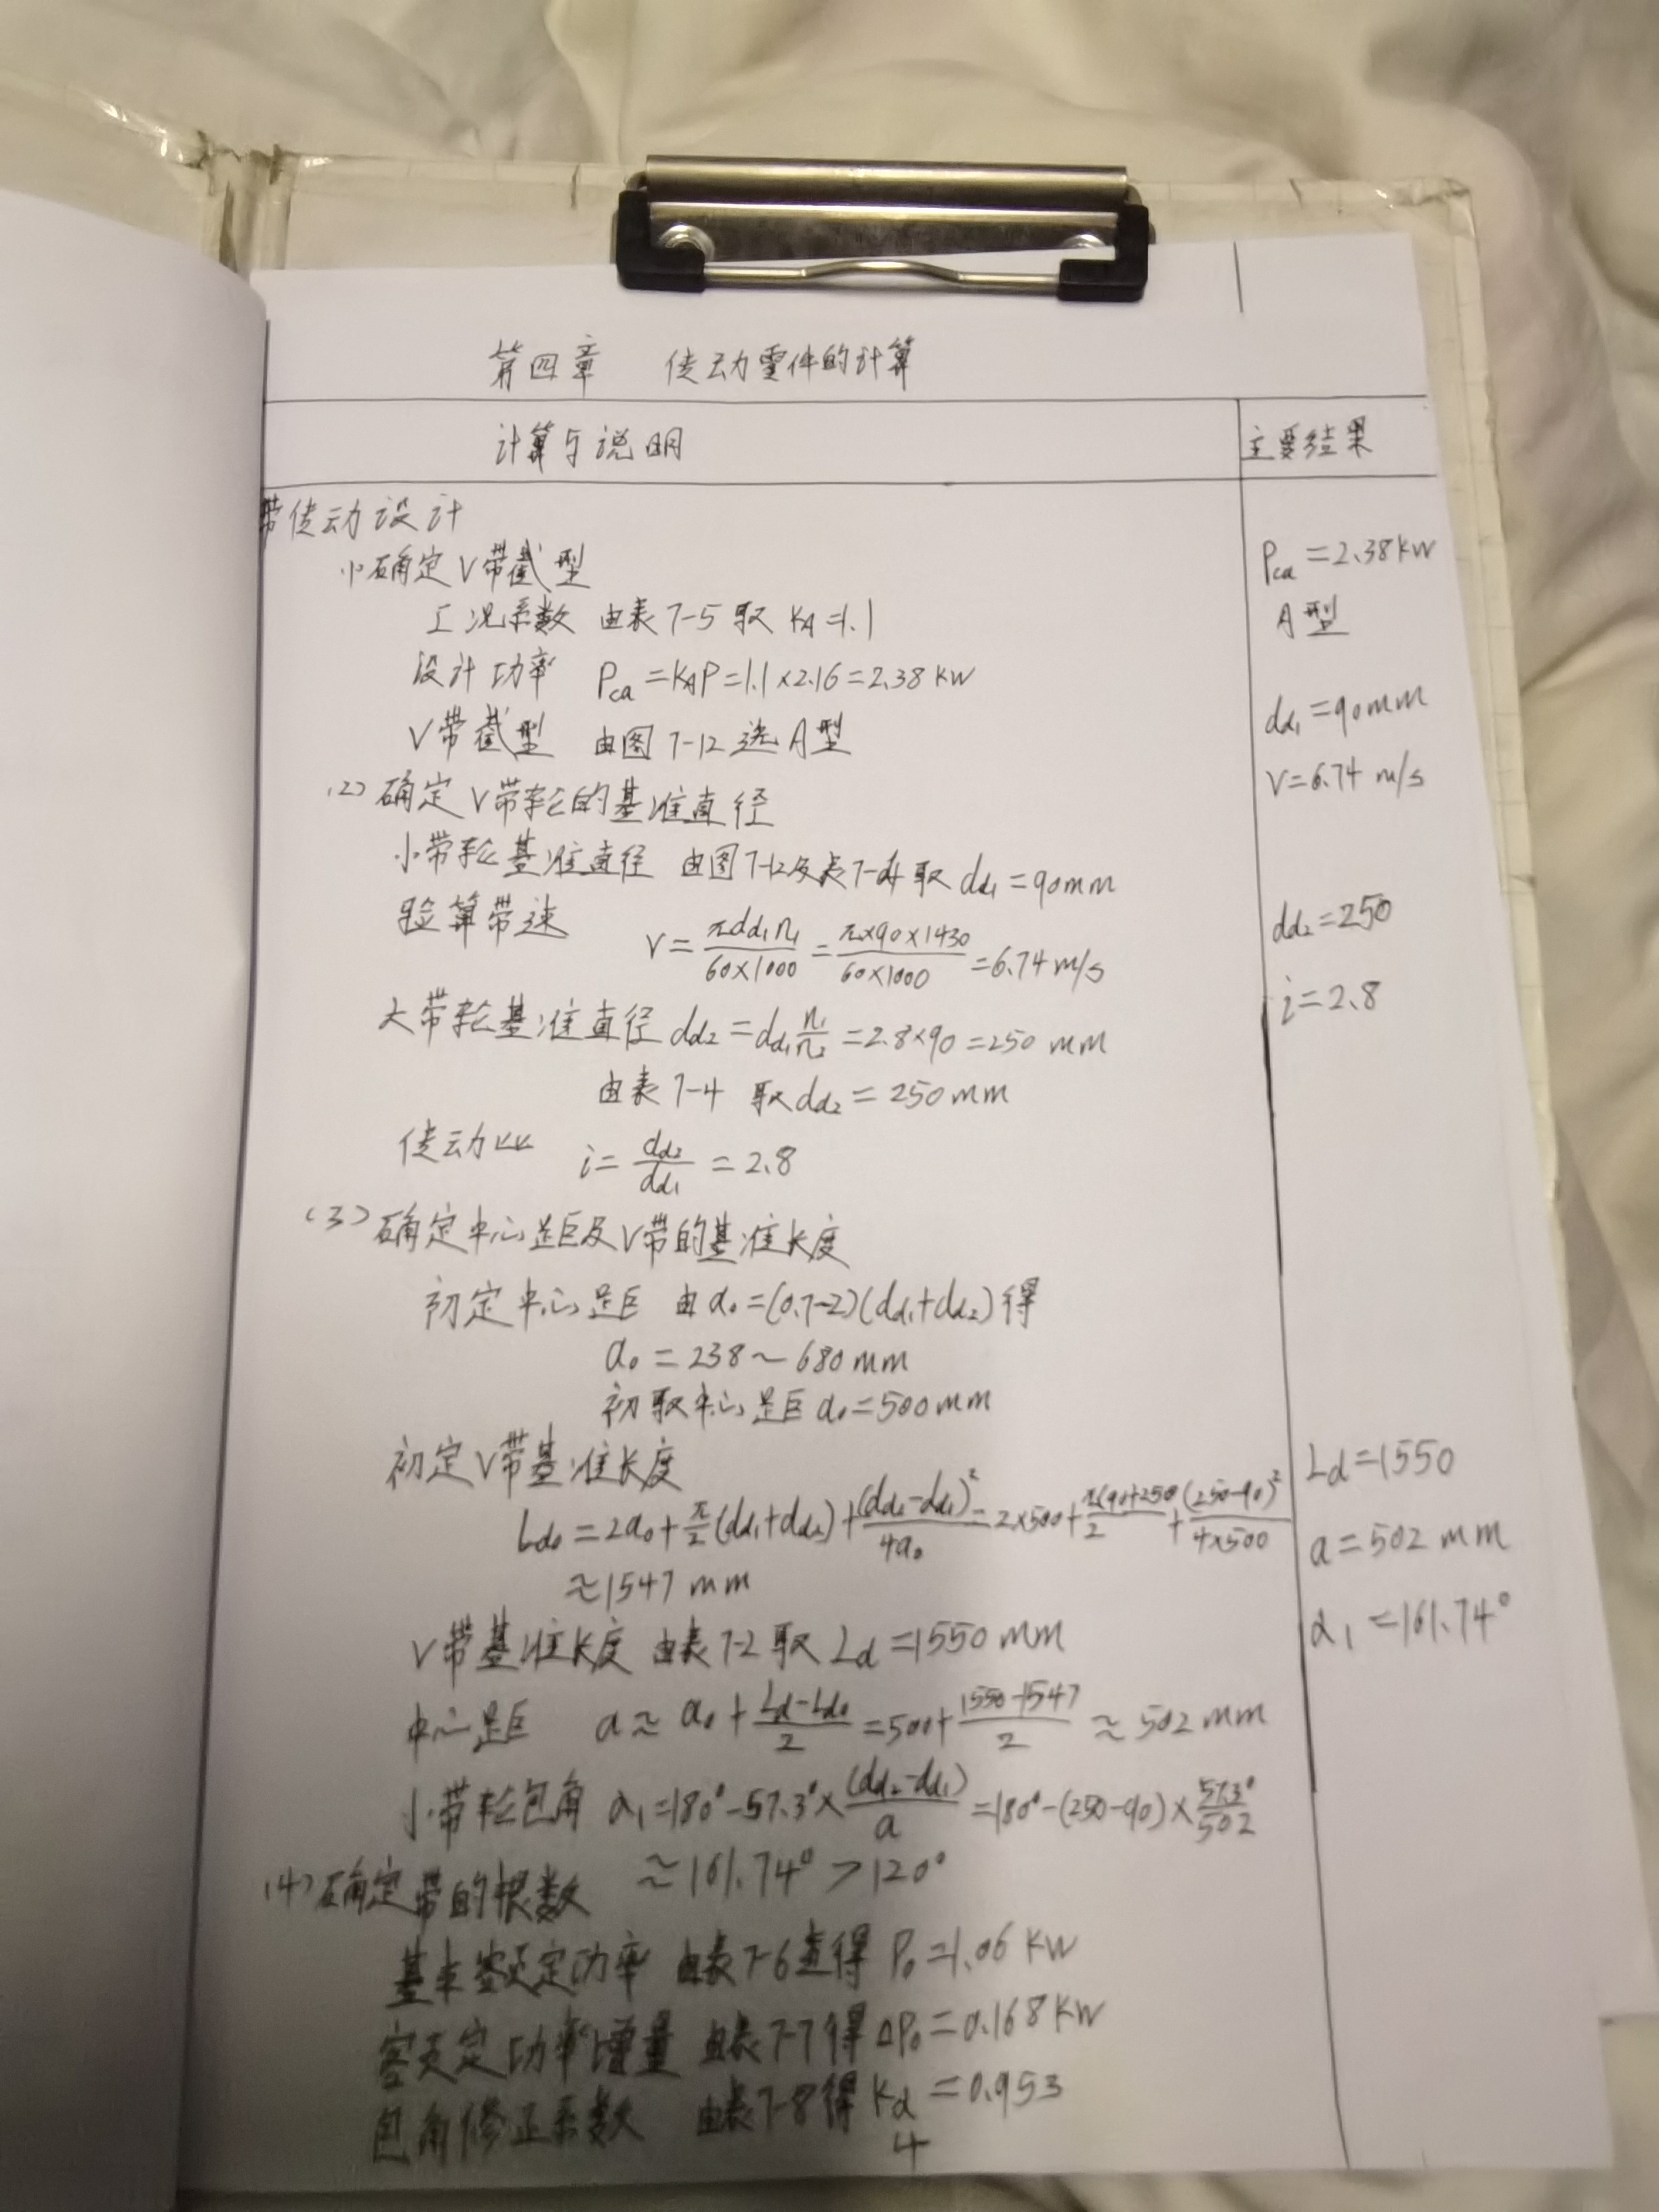 第四章 传动零件的计算
计算与说明 主要结果
带传动设计
(1)确定V带截型
工况系数 由表7-5取 KA=1.1
设计功率 Pca=KAP=1.1×2.16=2.38KW
V带截型 由图7-12选A型
Pca=2.38KW
A型
(2)确定V带轮的基准直径
小带轮基准直径 由图7-12及表7-4取 dd1=90mm
验算带速 V=πdd1n1/60×1000=π×90×1430/60×1000=6.74m/s
大带轮基准直径 dd2=dd1 n1/n2=2.8×90=250mm
由表7-4 取dd2=250mm
传动比 i=dd2/dd1=2.8
dd1=90mm
V=6.74 m/s
dd2=250
i=2.8
(3)确定中心距及V带的基准长度
初定中心距 由a0=(0.7-2)(dd1+dd2)得
a0=238~680mm
初取中心距a0=500mm
初定V带基准长度
Ld0=2a0+π/2(dd1+dd2)+(dd2-dd1)²/4a0=2×500+π(90+250)/2+(250-90)²/4×500
≈1547mm
V带基准长度 由表7-2取 Ld=1550mm
中心距 a≈a0+Ld-Ld0/2=500+1550-1547/2≈502mm
小带轮包角 α1=180°-57.3°×(dd2-dd1)/a=180°-(250-90)×57.3°/502
≈161.74°>120°
Ld=1550
a=502mm
α1=161.74°
(4)确定带的根数
基本额定功率 由表7-6查得 P0=1.06KW
额定功率增量 由表7-7得ΔP0=0.168KW
包角修正系数 由表7-8得Kα=0.953
4